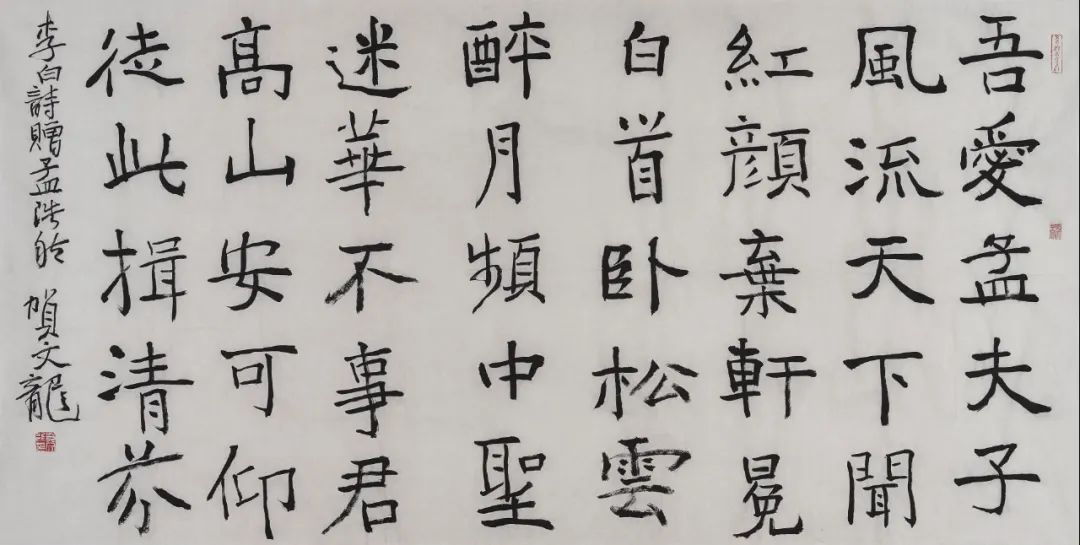 吾愛孟夫子
風流天下聞
紅顔棄軒冕
白首卧松雲
醉月頻中聖
迷華不事君
髙山安可仰
徒此揖清芬
李白詩贈孟浩然 賀文龍